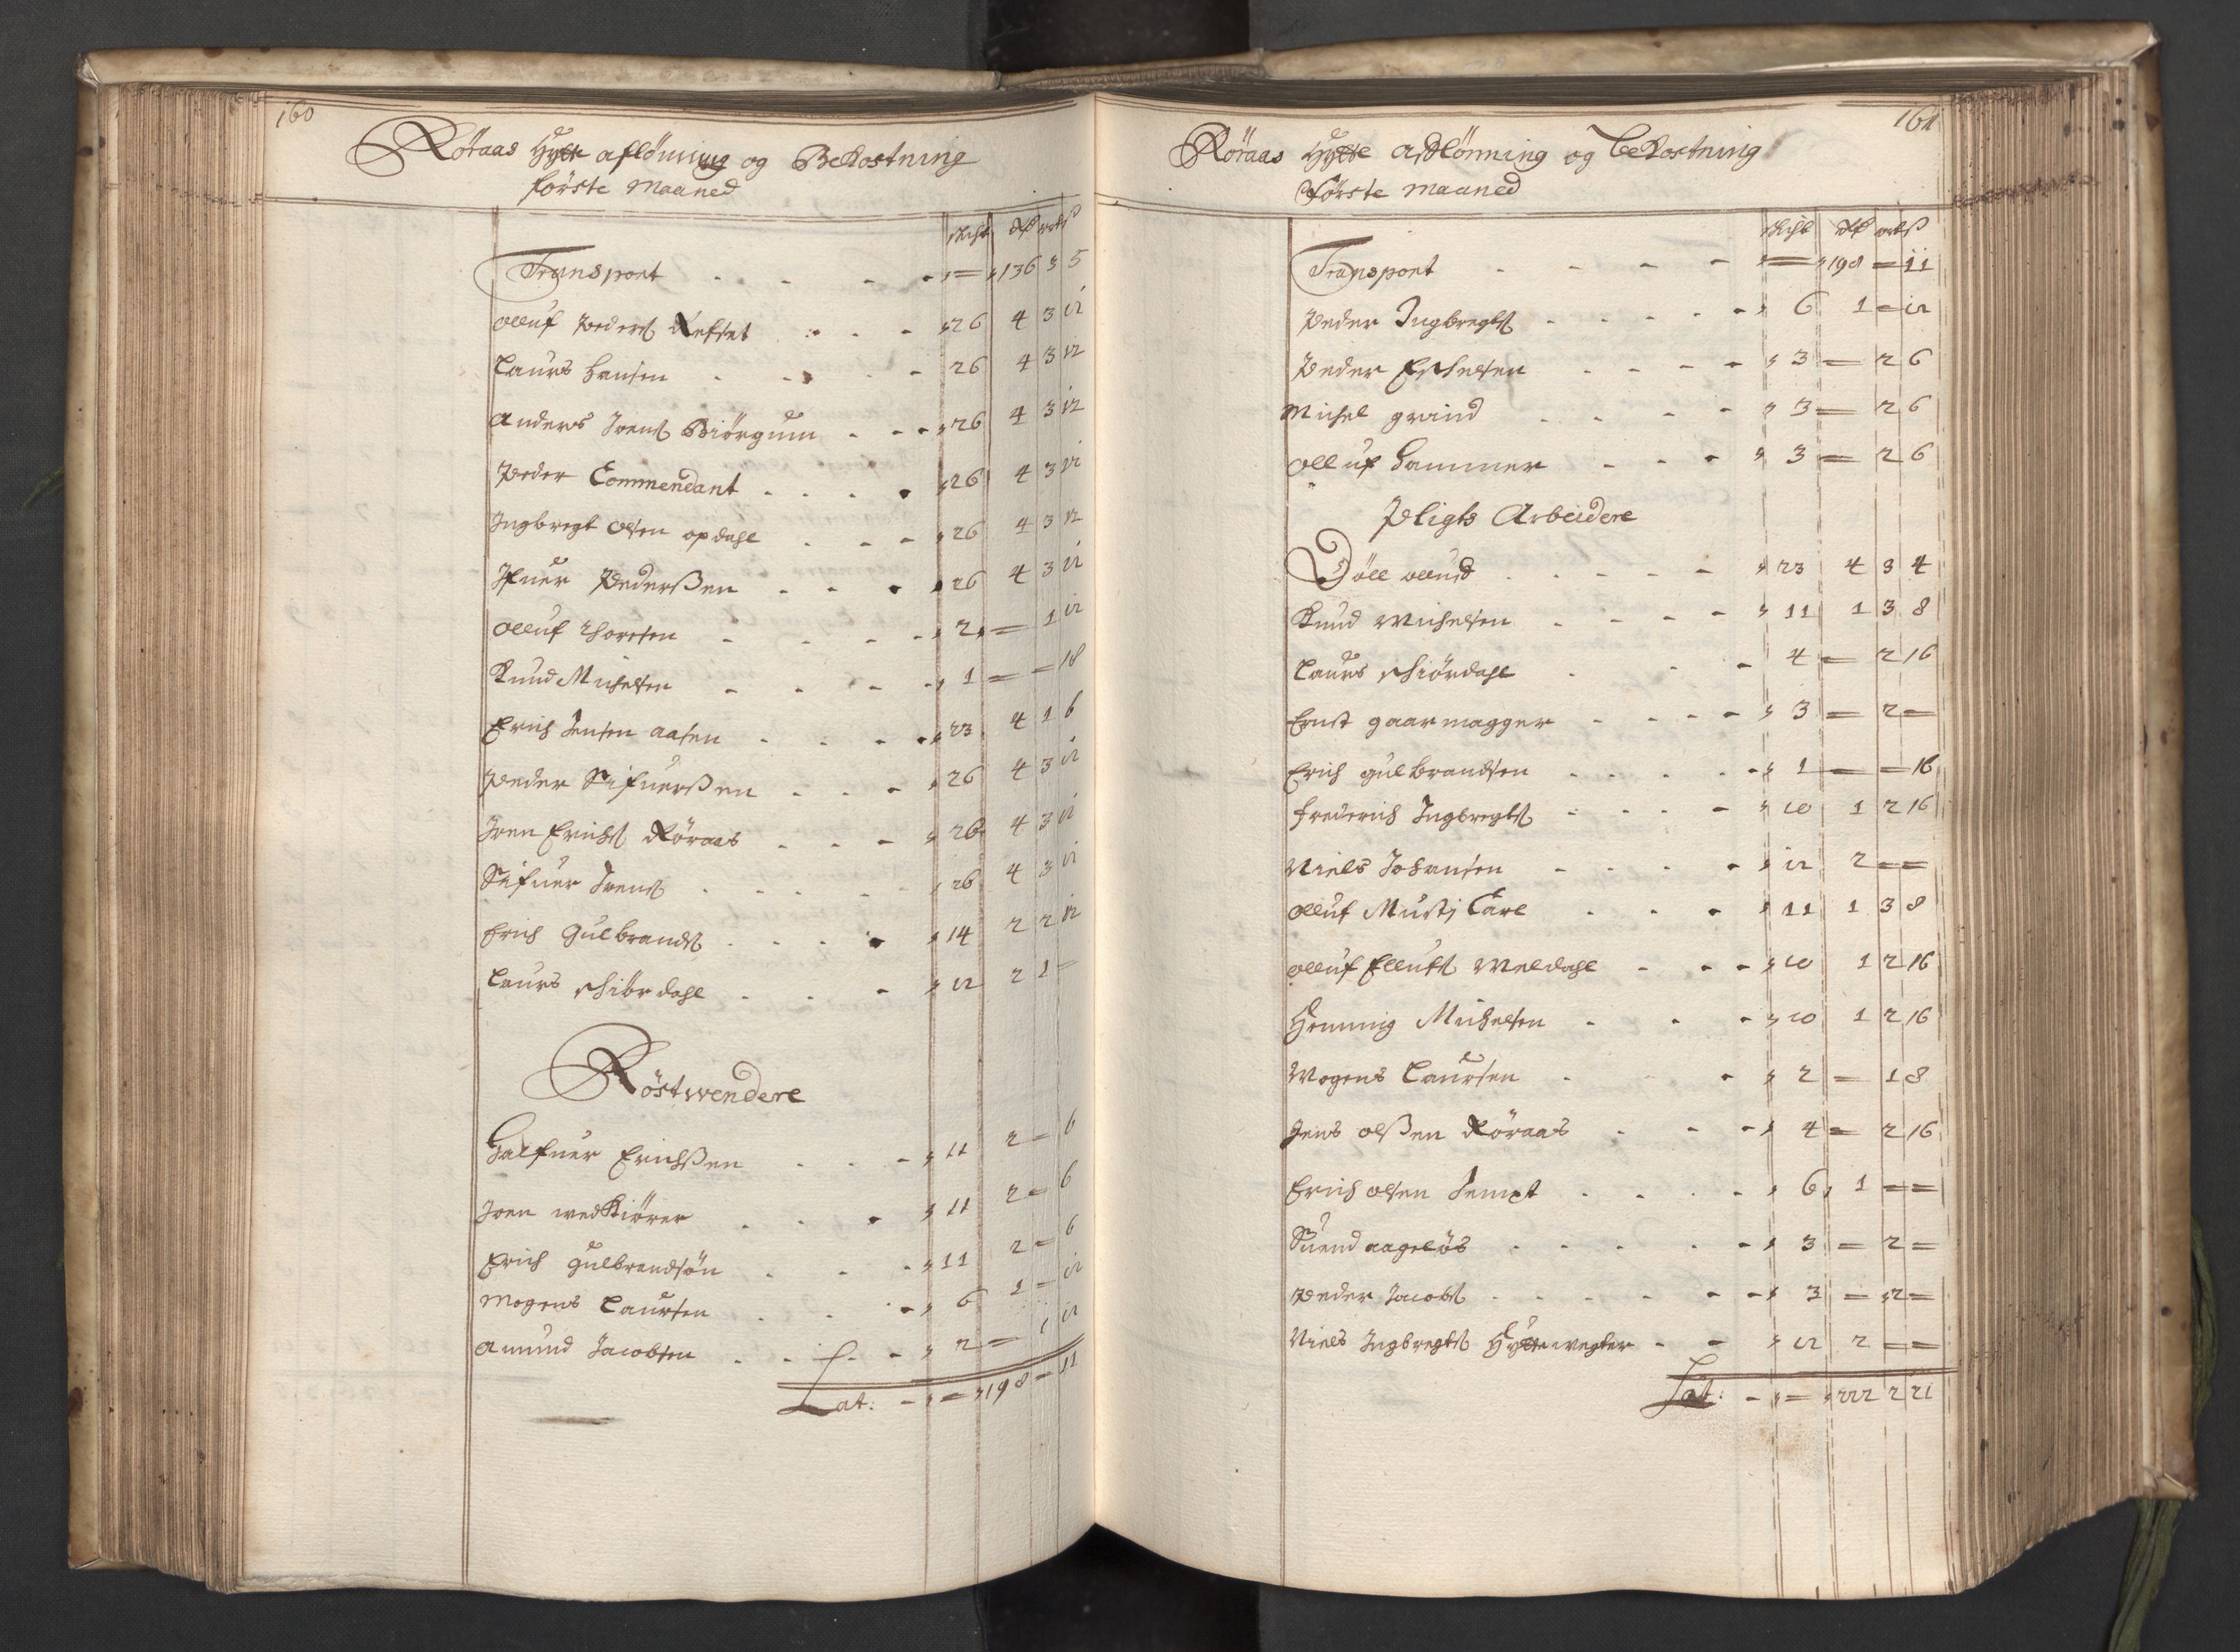 160
Röraas Hytte aflönning og Bekostning
förste Maaned
Transport - - - - = 136 3 5
Olluf Peders Refset - - - 26 4 3 12
Laurs Hansen - - - - 26 4 3 12
Anders Joens Biörgum - - - 26 4 3 12
Peder Commendant - - - - 26 4 3 12
Ingbregt Olsen opdahl - - - 26 4 3 12
Ifuer Pederßen - - - - 26 4 3 12
Olluf Thoresen - - - - 2 = 1 12
Knud Michelsen - - - - 1 = = 18
Erich Jensen aasen - - - - 23 4 1 6
Peder Sifuerßen - - - - 26 4 3 12
Joen Erichs Röraas - - - 26 4 3 12
Sifuer Joens - - - - 26 4 3 12
Erich Gulbrands - - - - 14 2 2 12
Laurs Schiördahl - - - 12 2 1 =
Röstwendere
Halfuer Erichßen - - - 11 2 = 6
Joen wedkiörer - - - 11 2 = 6
Erich gulbrandsön - - - 11 2 = 6
Mogens Laursen - - - 6 1 = 12
Amund Jacobsen - - - - 2 = 1 12
Lat: - = 198 = 11
161
Röraas Hytte Aflönning og Bekostning
Förste Maaned
Transport - - - - = 198 = 11
Peder Ingbregts - - - - - 6 1 = 12
Peder Erichsen - - - - 3 = 2 6
Michel grind - - - - 3 = 2 6
Olluf Hammer - - - 3 = 2 6
Pligts Arbeidere
Döll olluf - - - - - 23 4 3 4
Knud Michelsen - - - - 11 1 3 8
Laurs Schiördahl - - - 4 = 2 16
Ernst gaarmagger - - - - 3 = 2 =
Erich gulbrandsen - - - - - 1 = = 16
Frederich Ingbregts - - - - 10 1 2 16
Niels Johansen - - - - 12 2 = =
Olluf Musti Carl - - - 11 1 3 8
Olluf Ellufs Meldahl - - - 10 1 2 16
Henning Michelsen - - - 10 1 2 16
Mogens Laursen - - 2 = 1 8
Jens olßen Röraas - - - 4 = 2 16
Erich olsen Tempt - - - - 6 1 = =
Suend aageløs - - - - - 3 = 2 =
Peder Jacobs - - - - - - 3 = 2 =
Niels Ingbregts Hyttewegter - - 12 2 = =
Lat: - = 222 2 21